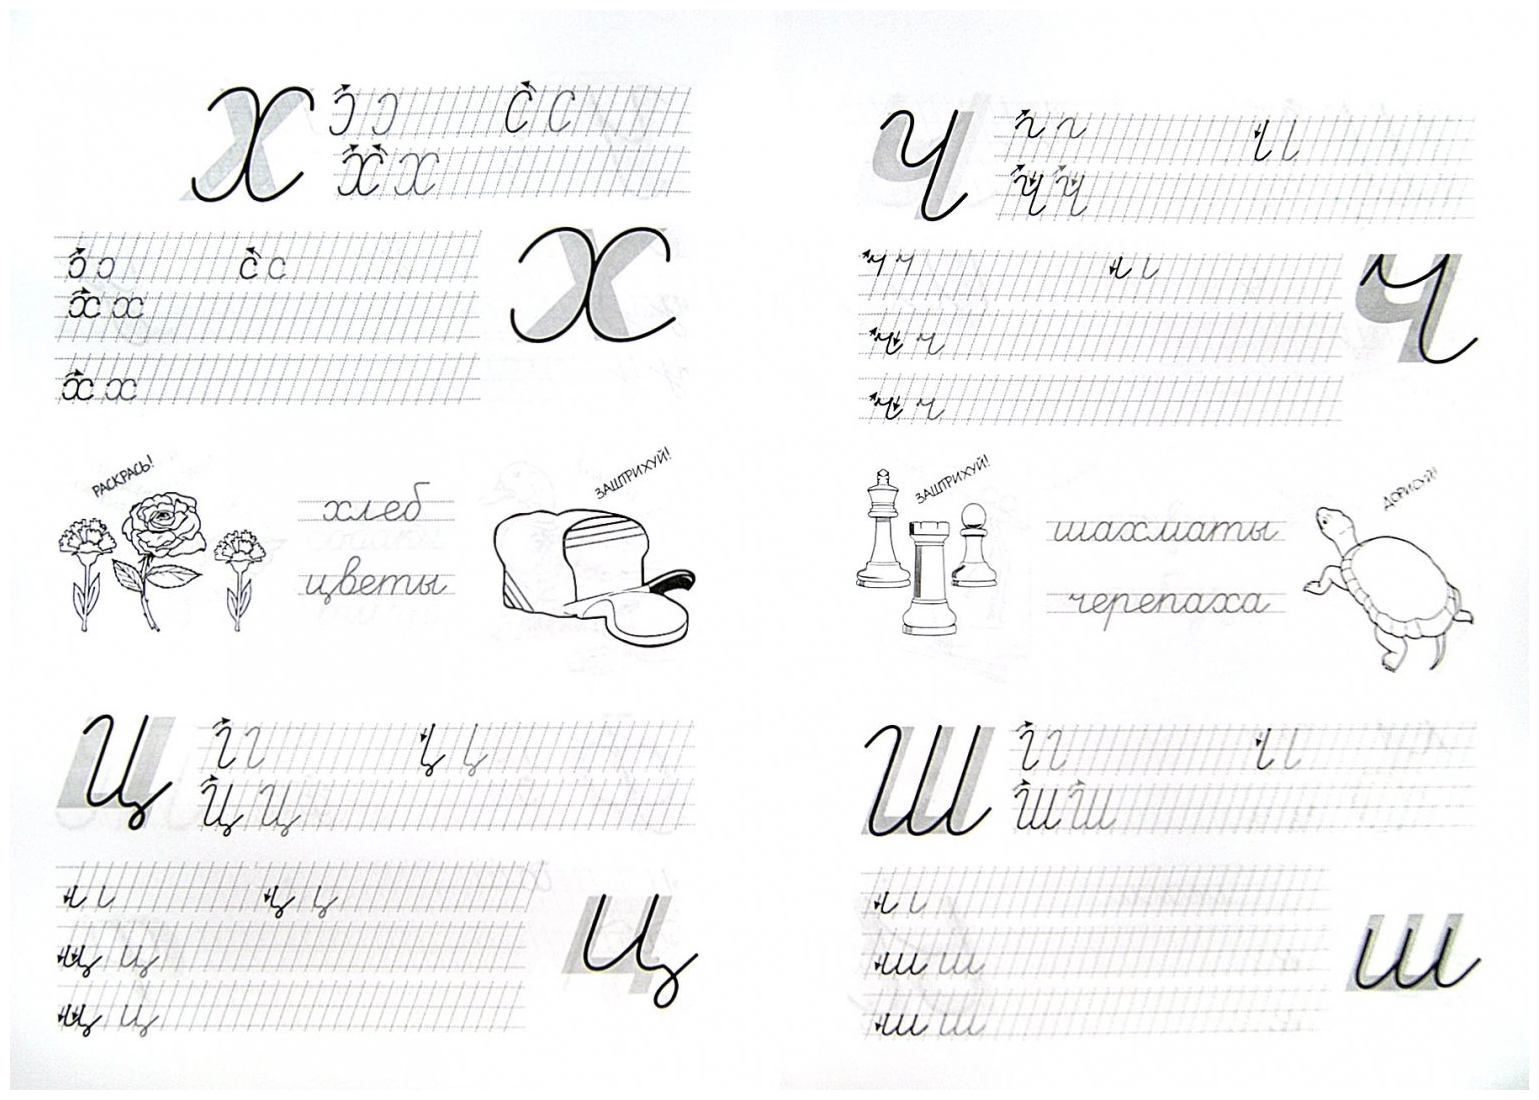 Х Ɔ Ɔ С С
Х Х
ɔ ɔ с с х
х х
х х
РАСКРАСЬ!
ЗАШТРИХУЙ!
хлеб
цветы
Ц
Ц Ц
ц
ц ц
ц ц
Ч
Ч Ч
ч
ч ч
ч ч
ЗАШТРИХУЙ!
ДОРИСУЙ!
шахматы
черепаха
Ш
Ш Ш
ш
ш ш
ш ш